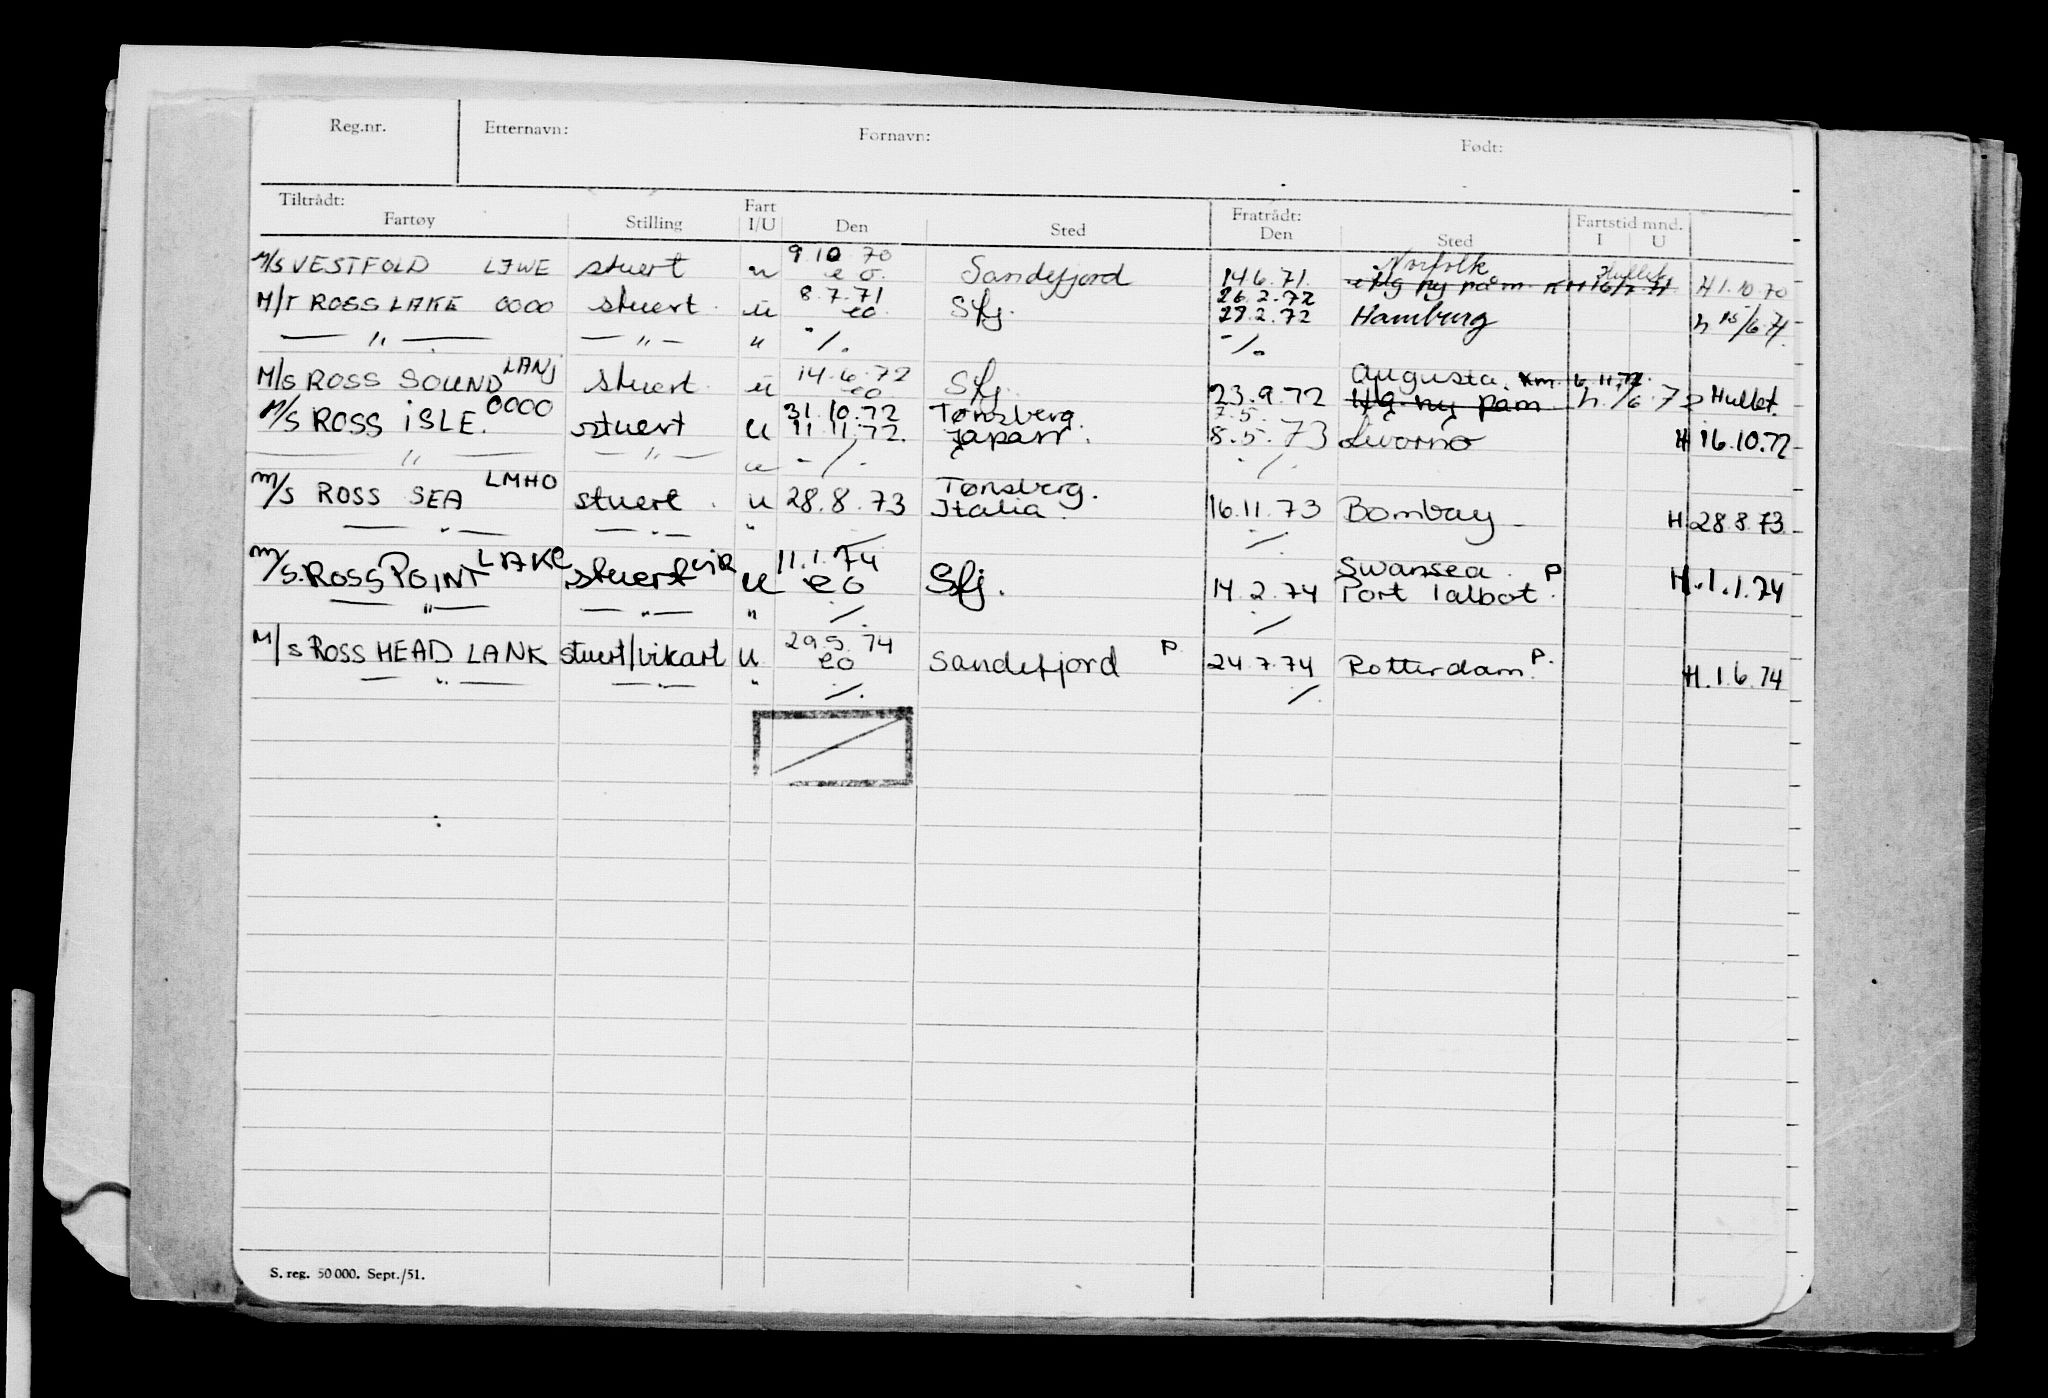 Reg.nr. Etternavn: Fornavn: Født:
Tiltrådt: Fart Fratrådt: Fartstid mnd.
Fartøy Stilling I/U Den Sted Den Sted I U
9.10.70 Norfolk Hullet
M/S VESTFOLD LJWE stuert u e o. Sandefjord 14.6.71. Ug ny påm. H 1.10.70
8.7.71 26.2.72
M/T ROSS LAKE 0000 stuert. u eo. Sfj. 28.2.72 Hamburg h 15/6.71.
— " — — " — " -/. -/.
LANJ 14.6.72 Augusta. Km. 6.11.72.
M/S ROSS SOUND stuert. u eo Sfj. 23.9.72 Ug. ny påm. h. 1/6.72 Hullet.
0000 31.10.72 Tønsberg. 7.5.
M/S ROSS ISLE. stuert u 11.11.72. Japan. 8.5.73 Livorno H 16.10.72
— " — — " — u -/. -/.
LMHO Tønsberg.
M/S ROSS SEA stuert. u 28.8.73 Italia. 16.11.73 Bombay H 28.8.73
— " — — " — " / /.
LAKC vik 11.1.74 Swansea. P
M/S. ROSS POINT stuert u eo Sfj. 14.2.74 Port Talbot. H.1.1.74
— " — — " — " /. /
29.5.74
M/S ROSS HEAD LANK stuert/vikart u eo Sandefjord P. 24.7.74 Rotterdam P. H.1.6.74
— " — — " — " /. /.
S. reg. 50 000. Sept./51.